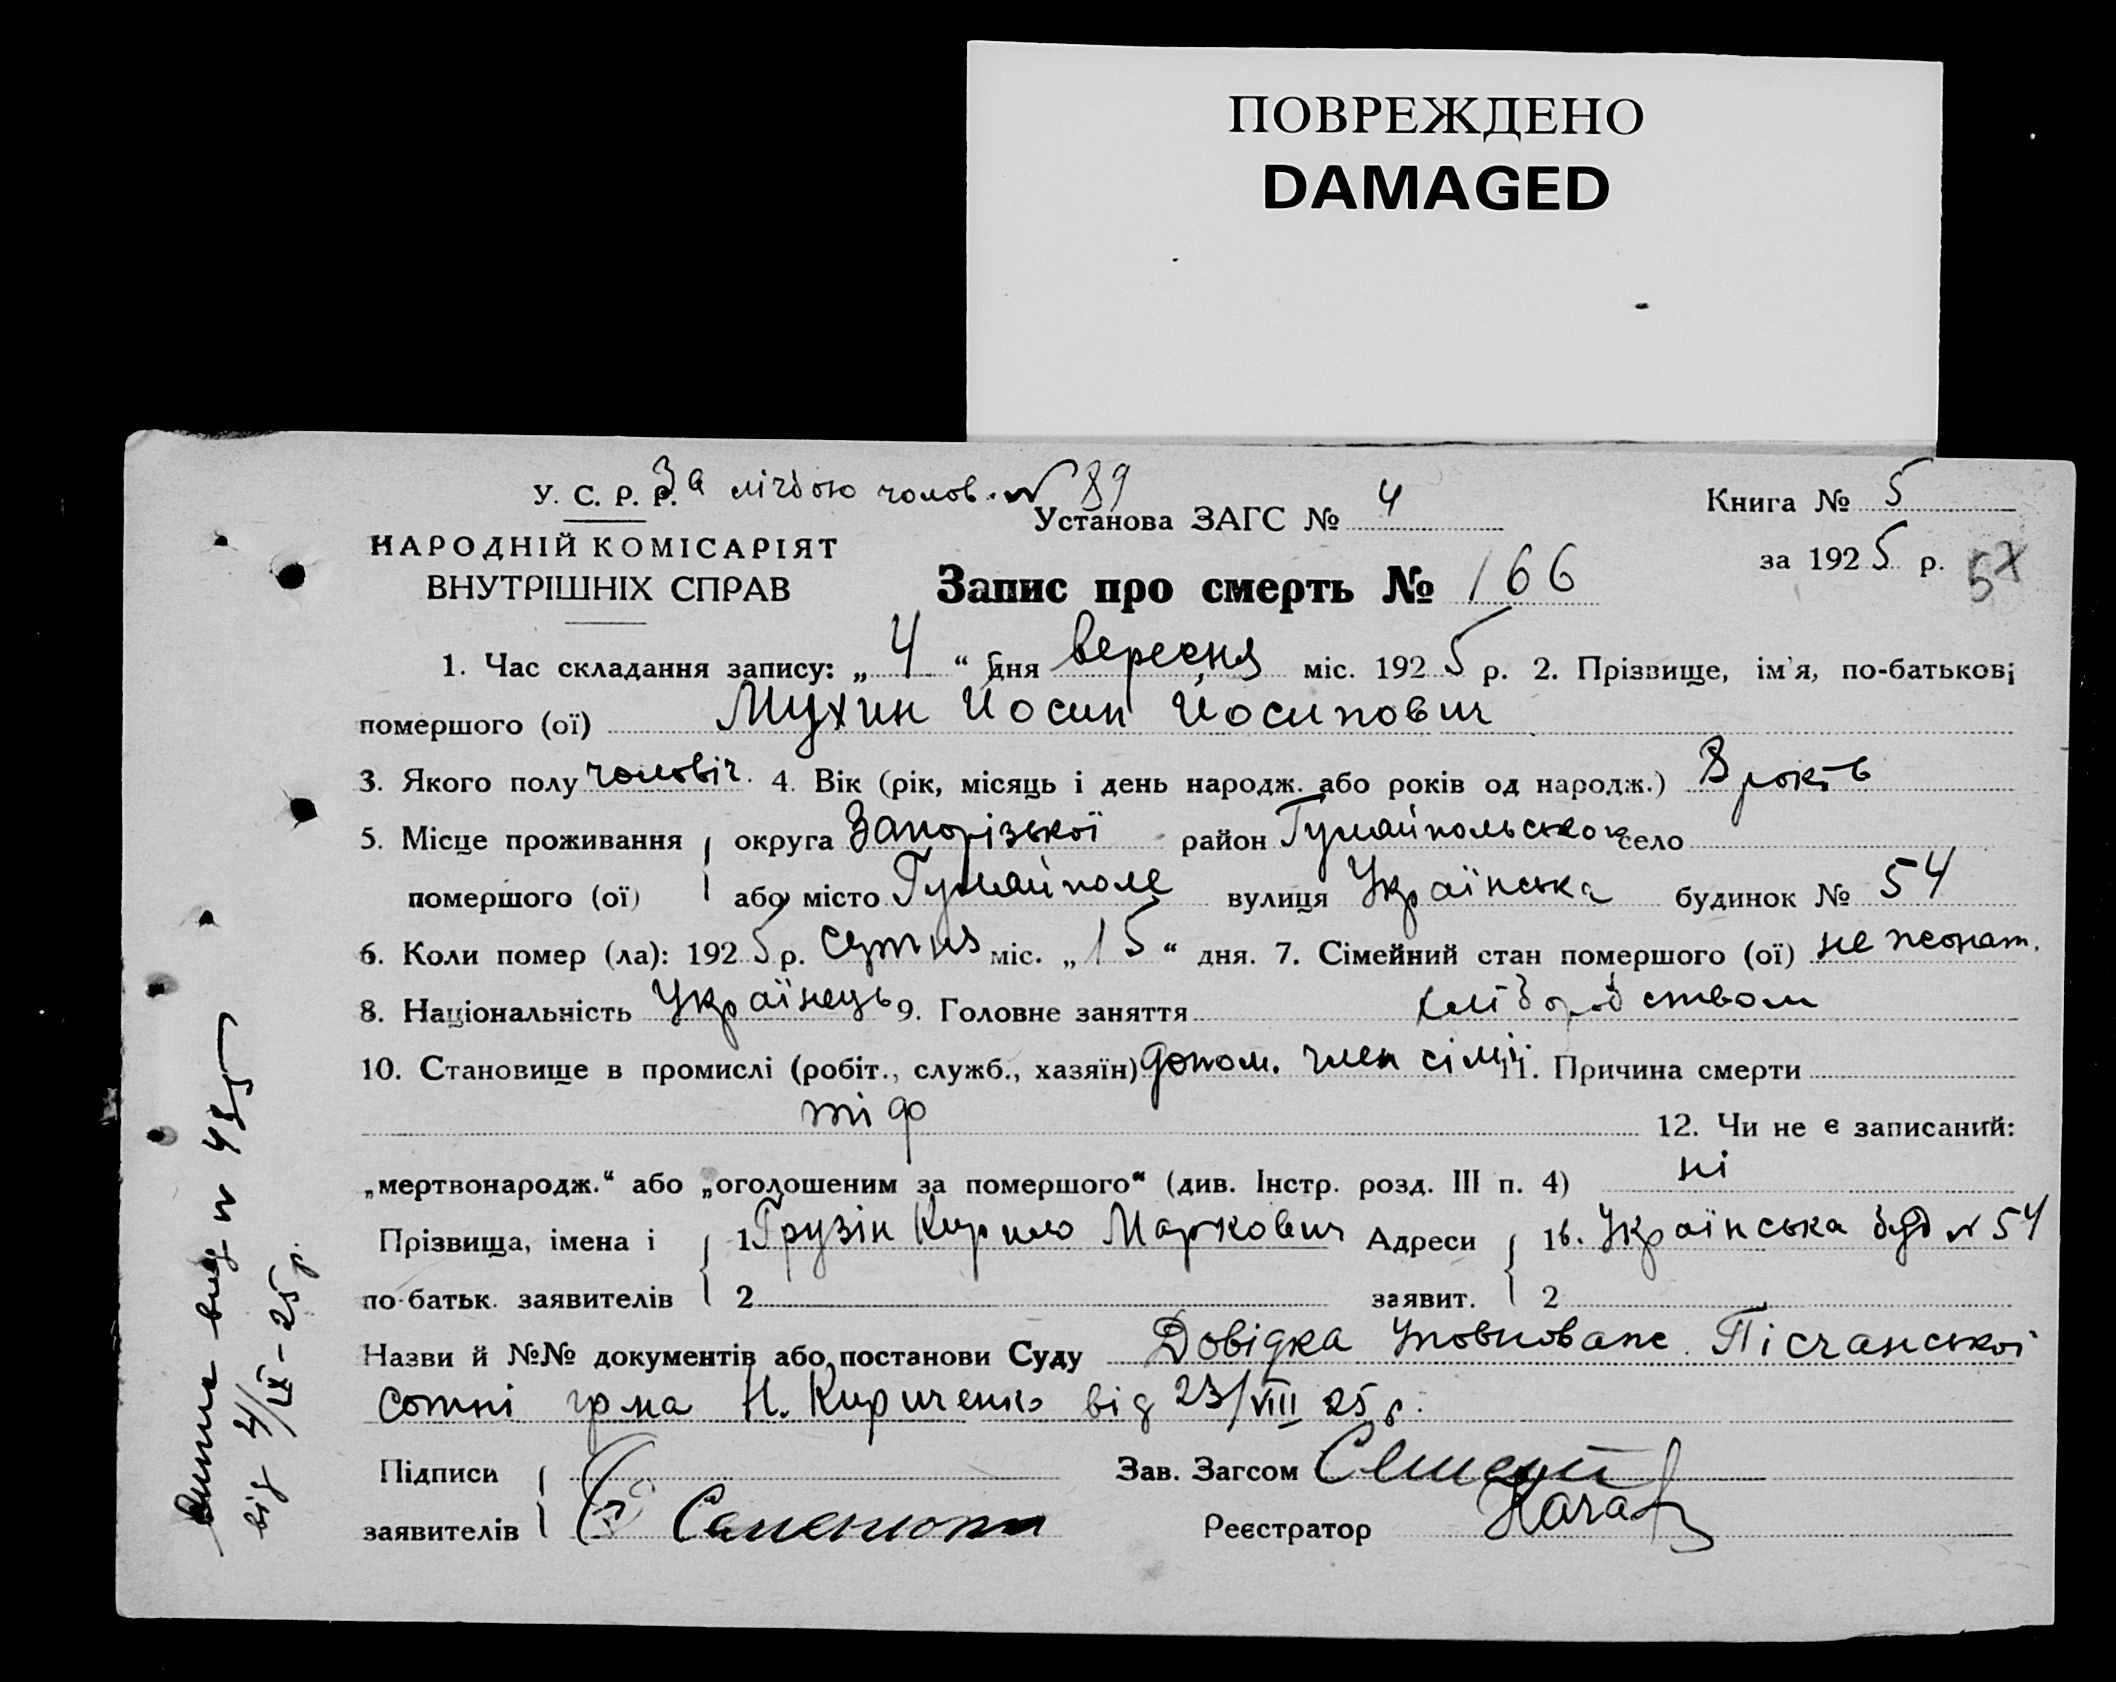 ПОВРЕЖДЕНО
DAMAGED
У. С. Р. Р. За лічбою чолов. № 89
Установа ЗАГС № 4
Книга № 5
НАРОДНІЙ КОМІСАРІЯТ
ВНУТРІШНІХ СПРАВ
за 1925 р. 57
Запис про смерть № 166
1. Час складання запису: „4“ дня вересня міс. 1925 р. 2. Прізвище, ім'я, по-батькові
помершого (ої) Мухин Йосип Йосипович
3. Якого полу чоловіч. 4. Вік (рік, місяць і день народж. або років од народж.) 8 років
5. Місце проживання округа Запорізької район Гуляйпольсько село
помершого (ої) або місто Гуляйполе вулиця Українська будинок № 54
6. Коли помер (ла): 1925 р. серпня міс. „15“ дня. 7. Сімейний стан помершого (ої) не жонат.
8. Національність Українець 9. Головне заняття хліборобством
10. Становище в промислі (робіт., служб., хазяїн) допом. член сімї 11. Причина смерти
тіф 12. Чи не є записаний:
„мертвонародж.“ або „оголошеним за помершого“ (див. Інстр. розд. III п. 4) ні
Прізвища, імена і 1 Грузін Кирило Маркович Адреси 1 в. Українська буд № 54
по-батьк. заявителів 2 заявит. 2
Назви й №№ документів або постанови Суду Довідка уповноваж. Пісчанської
сотні гр-на Н. Кириченко від 23/VIII 25 р.
Підписи Зав. Загсом
заявителів Реєстратор
від 4/IX-25 р.